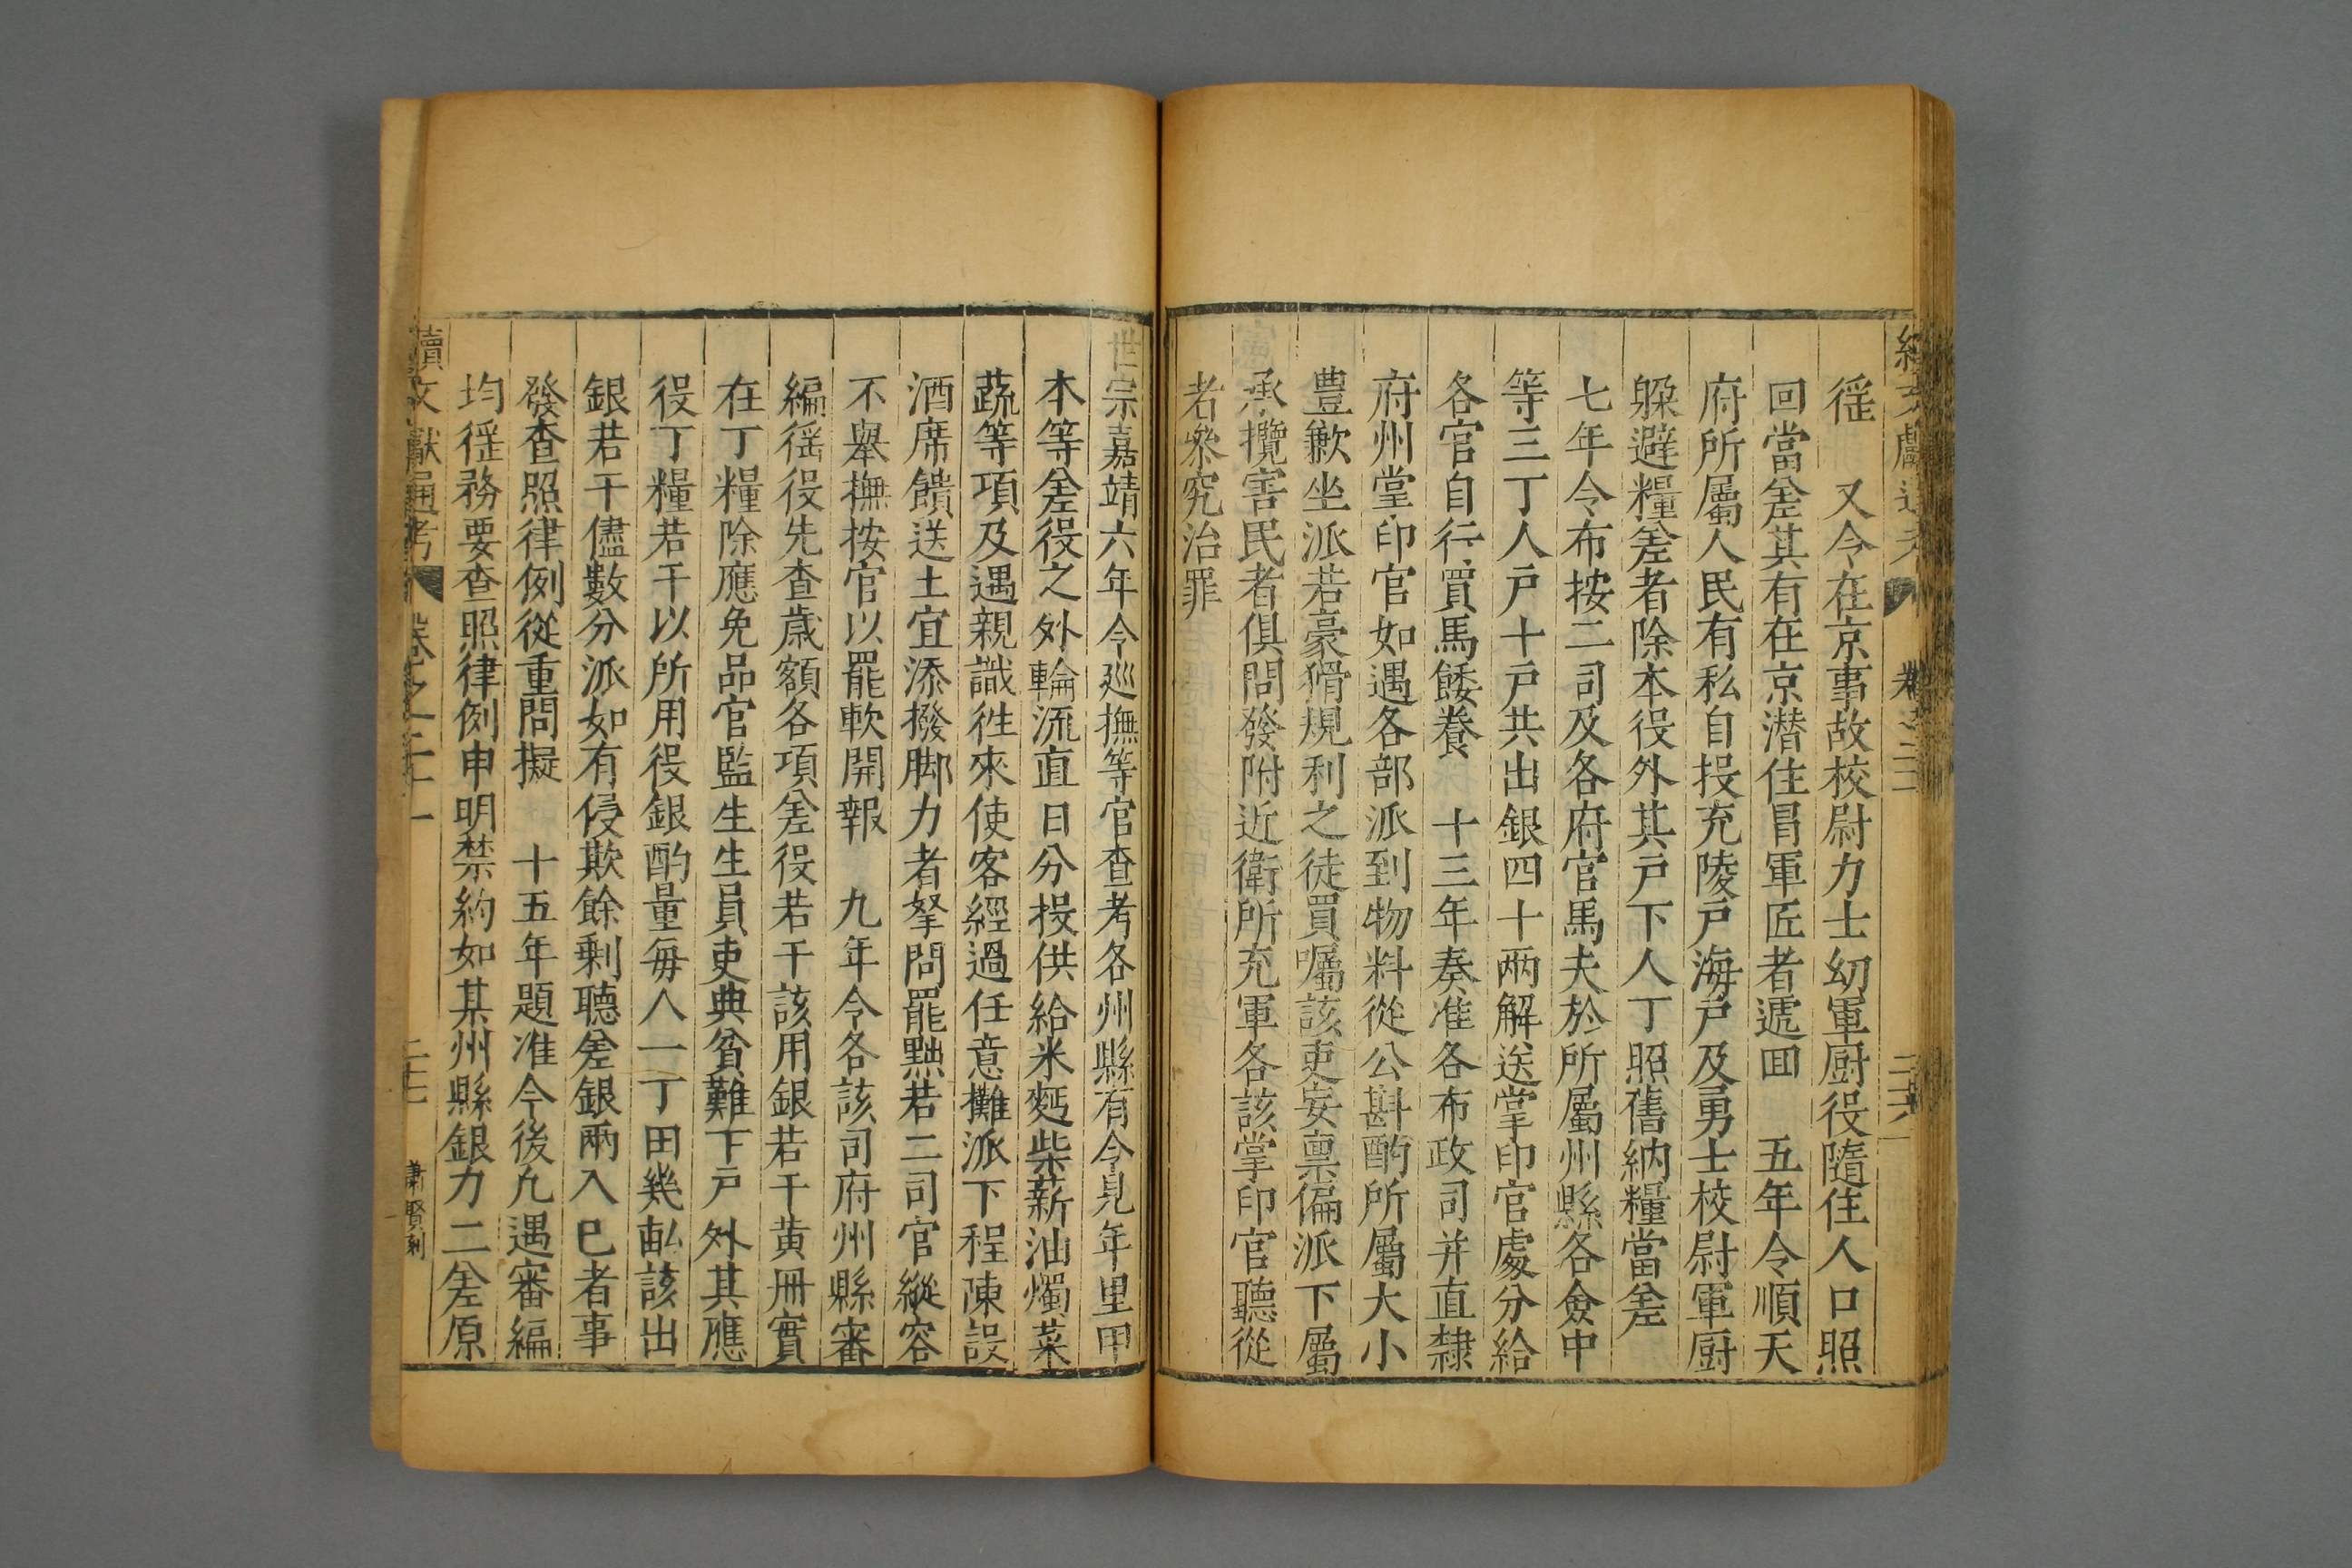 徭　又令在京事故校尉力士幼軍厨役隨住人口照
回當差其有在京潜住冐軍匠者遞回　五年令順天
府所屬人民有私自投充陵戶海戶及勇士校尉軍厨
躱避糧差者除本役外其戶下人丁照舊納糧當差
七年令布按二司及各府官馬夫於所屬州縣各僉中
等三丁人戶十戶共出銀四十兩解送掌印官處分給
各官自行買馬餧養　十三年奏准各布政司并直隸
府州堂印官如遇各部派到物料從公斟酌所屬大小
豊歉坐派若豪猾規利之徒買囑該吏妄禀偏派下屬
承攬害民者俱問發附近衛所充軍各該掌印官聽從
者叅究治罪
世宗嘉靖六年令廵撫等官查考各州縣有令見年里甲
本等差役之外輪流直日分投供給米麪柴薪油燭菜
蔬等項及遇親識徃來使客經過任意攤派下程陳設
酒席饋送土宜添撥脚力者拏問罷黜若二司官縱容
不舉撫按官以罷軟開報　九年令各該司府州縣審
編徭役先查歲額各項差役若干該用銀若干黄冊實
在丁糧除應免品官監生生員吏典貧難下戶外其應
役丁糧若干以所用役銀酌量每人一丁田幾畝該出
銀若干儘數分派如有侵欺餘剩聽差銀兩入已者事
發查照律例從重問擬　十五年題准今後凢遇審編
均徭務要查照律例申明禁約如某州縣銀力二差原
續文獻通考　卷之二十一　二十七　肅賢刻